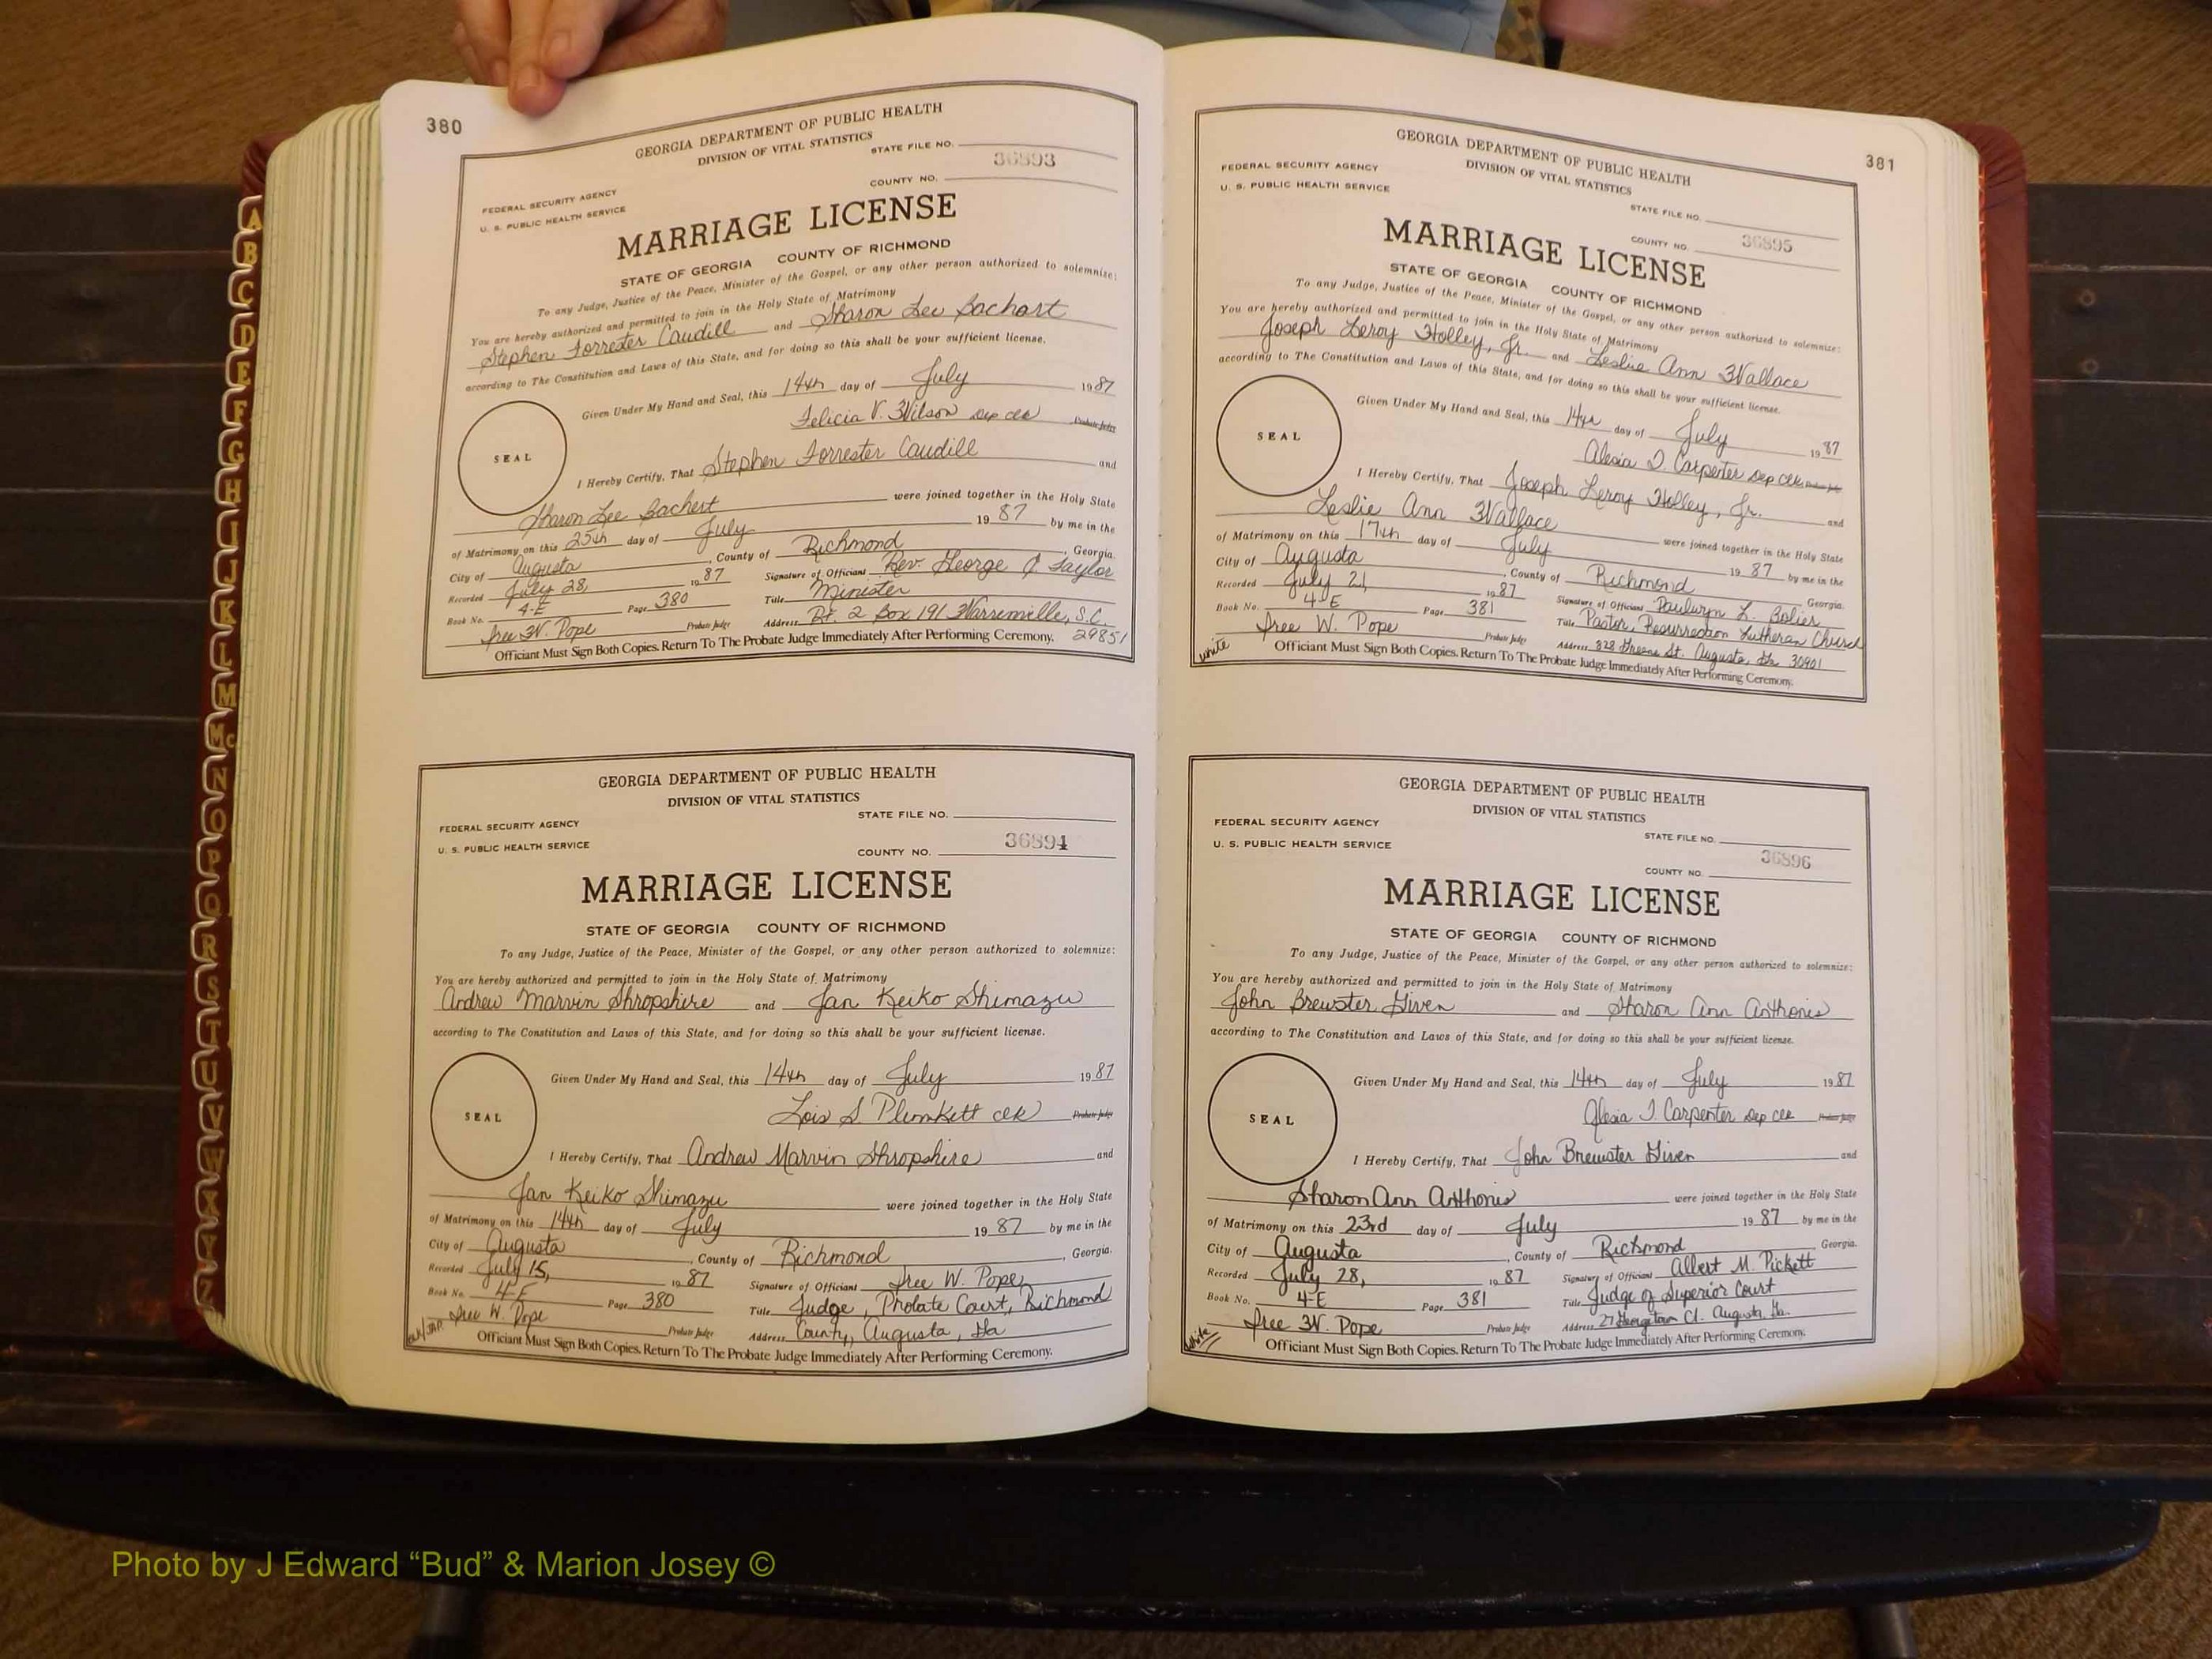 380
GEORGIA DEPARTMENT OF PUBLIC HEALTH
DIVISION OF VITAL STATISTICS
STATE FILE NO.
36893
FEDERAL SECURITY AGENCY
COUNTY NO.
U. S. PUBLIC HEALTH SERVICE
MARRIAGE LICENSE
STATE OF GEORGIA COUNTY OF RICHMOND
To any Judge, Justice of the Peace, Minister of the Gospel, or any other person authorized to solemnize:
You are hereby authorized and permitted to join in the Holy State of Matrimony
Stephen Forrester Caudill and Sharon Lee Bachert
according to The Constitution and Laws of this State, and for doing so this shall be your sufficient license.
Given Under My Hand and Seal, this 14th day of July 1987
Felicia V. Wilson Dep Clk Probate Judge
SEAL
I Hereby Certify, That Stephen Forrester Caudill and
Sharon Lee Bachert were joined together in the Holy State
of Matrimony on this 25th day of July 1987 by me in the
City of Augusta, County of Richmond, Georgia.
Recorded July 28, 1987 Signature of Officiant Rev. George C. Taylor
Book No. 4-E Page 380 Title Minister
Iree W. Pope Probate Judge Address Rt. 2 Box 191 Warrenville, S.C.
29851
Officiant Must Sign Both Copies. Return To The Probate Judge Immediately After Performing Ceremony.
GEORGIA DEPARTMENT OF PUBLIC HEALTH
DIVISION OF VITAL STATISTICS
STATE FILE NO.
FEDERAL SECURITY AGENCY
36894
U. S. PUBLIC HEALTH SERVICE
COUNTY NO.
MARRIAGE LICENSE
STATE OF GEORGIA COUNTY OF RICHMOND
To any Judge, Justice of the Peace, Minister of the Gospel, or any other person authorized to solemnize:
You are hereby authorized and permitted to join in the Holy State of Matrimony
Andrew Marvin Shropshire and Jan Keiko Shimazu
according to The Constitution and Laws of this State, and for doing so this shall be your sufficient license.
Given Under My Hand and Seal, this 14th day of July 1987
Lois S. Plunkett Clk Probate Judge
SEAL
I Hereby Certify, That Andrew Marvin Shropshire and
Jan Keiko Shimazu were joined together in the Holy State
of Matrimony on this 14th day of July 1987 by me in the
City of Augusta, County of Richmond, Georgia.
Recorded July 15, 1987 Signature of Officiant Iree W. Pope
Book No. 4-E Page 380 Title Judge, Probate Court, Richmond
Iree W. Pope Probate Judge Address County, Augusta, Ga
BLK/JAP.
Officiant Must Sign Both Copies. Return To The Probate Judge Immediately After Performing Ceremony.
381
GEORGIA DEPARTMENT OF PUBLIC HEALTH
DIVISION OF VITAL STATISTICS
FEDERAL SECURITY AGENCY
U. S. PUBLIC HEALTH SERVICE
STATE FILE NO.
COUNTY NO. 36895
MARRIAGE LICENSE
STATE OF GEORGIA COUNTY OF RICHMOND
To any Judge, Justice of the Peace, Minister of the Gospel, or any other person authorized to solemnize:
You are hereby authorized and permitted to join in the Holy State of Matrimony
Joseph Leroy Holley, Jr. and Leslie Ann Wallace
according to The Constitution and Laws of this State, and for doing so this shall be your sufficient license.
Given Under My Hand and Seal, this 14th day of July 1987
Alesia J. Carpenter Dep Clk Probate Judge
SEAL
I Hereby Certify, That Joseph Leroy Holley, Jr. and
Leslie Ann Wallace were joined together in the Holy State
of Matrimony on this 17th day of July 1987 by me in the
City of Augusta, County of Richmond Georgia.
Recorded July 21, 1987 Signature of Officiant Paulwyn L. Bolier
Book No. 4-E Page 381 Title Pastor, Resurrection Lutheran Church
Iree W. Pope Probate Judge Address 828 Greene St. Augusta, Ga 30901
White
Officiant Must Sign Both Copies. Return To The Probate Judge Immediately After Performing Ceremony.
GEORGIA DEPARTMENT OF PUBLIC HEALTH
DIVISION OF VITAL STATISTICS
FEDERAL SECURITY AGENCY
STATE FILE NO.
U. S. PUBLIC HEALTH SERVICE
36896
COUNTY NO.
MARRIAGE LICENSE
STATE OF GEORGIA COUNTY OF RICHMOND
To any Judge, Justice of the Peace, Minister of the Gospel, or any other person authorized to solemnize:
You are hereby authorized and permitted to join in the Holy State of Matrimony
John Brewster Given and Sharon Ann Anthonis
according to The Constitution and Laws of this State, and for doing so this shall be your sufficient license.
Given Under My Hand and Seal, this 14th day of July 1987
Alesia J. Carpenter Dep Clk Probate Judge
SEAL
I Hereby Certify, That John Brewster Given and
Sharon Ann Anthonis were joined together in the Holy State
of Matrimony on this 23rd day of July 1987 by me in the
City of Augusta, County of Richmond Georgia.
Recorded July 28, 1987 Signature of Officiant Albert M. Pickett
Book No. 4-E Page 381 Title Judge of Superior Court
Iree W. Pope Probate Judge Address 27 Georgetown Ct. Augusta, Ga.
White
Officiant Must Sign Both Copies. Return To The Probate Judge Immediately After Performing Ceremony.
A
B
C
D
E
F
G
H
I
J
K
L
M
Mc
N
O
P
Q
R
S
T
U
V
W
X
Y
Z
Photo by J Edward “Bud” & Marion Josey ©